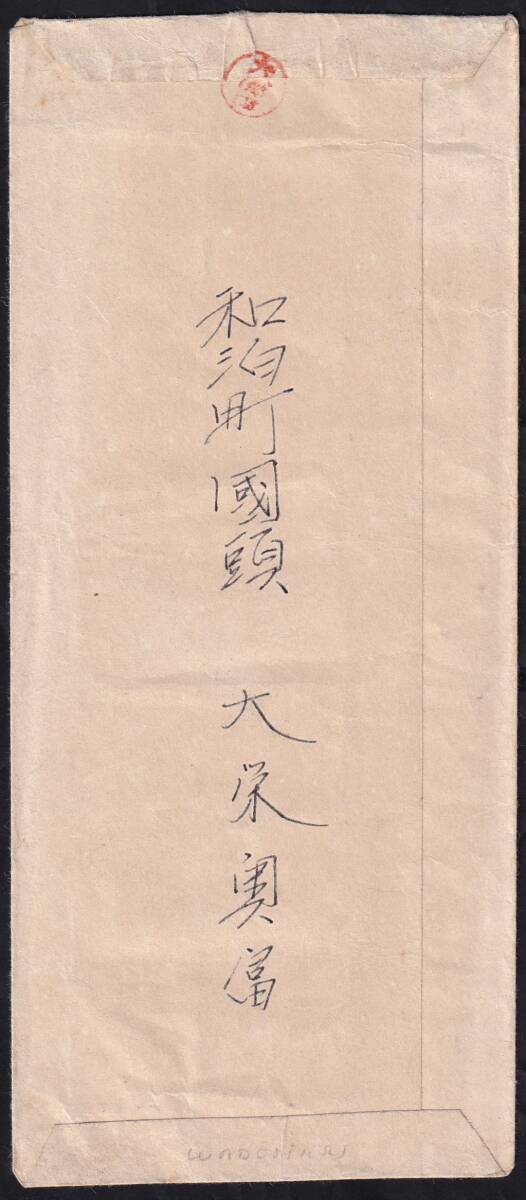 和泊町國頭 大栄奥富